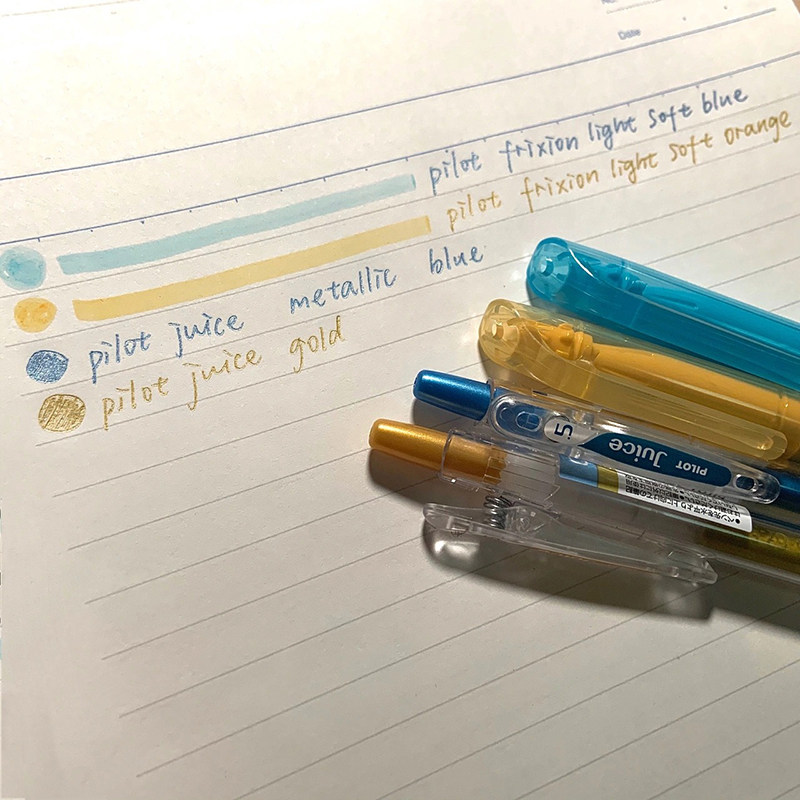 No.
Date
pilot frixion light soft blue
pilot frixion light soft orange
pilot juice metallic blue
pilot juice gold
5
PILOT Juice